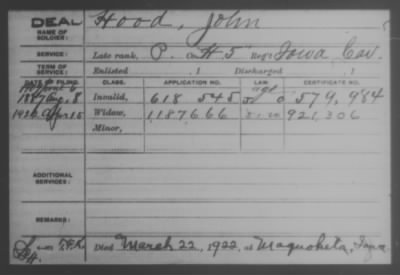 DEAL
NAME OF SOLDIER: Hood, John
SERVICE: Late rank, P. Co. H. 5" Reg't Iowa Cav.
TERM OF SERVICE: Enlisted , 1 Discharged , 1
DATE OF FILING. CLASS. APPLICATION NO. LAW. CERTIFICATE NO.
age
1887 Aug. 8 Invalid, 618 545 579,984
1922 Apr 15 Widow, 1187666 921,306
Minor,
ADDITIONAL SERVICES:
REMARKS:
Died March 22, 1922, at Maquoketa, Iowa